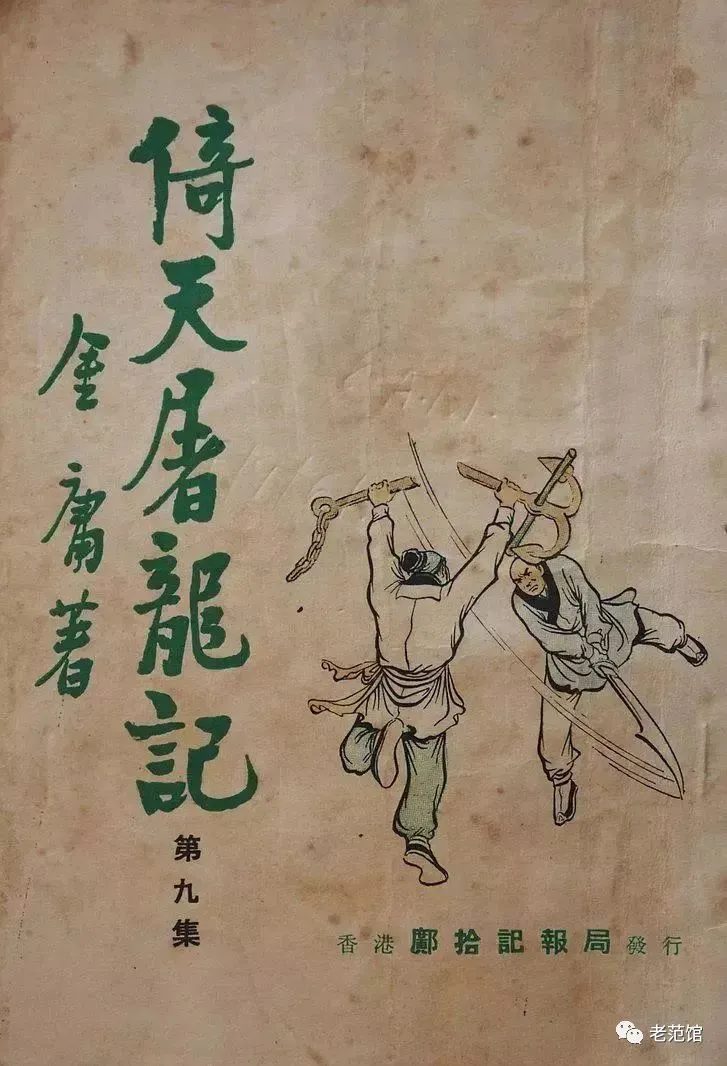 倚天屠龍記
金庸著
第九集
香港鄺拾記報局發行
老范馆